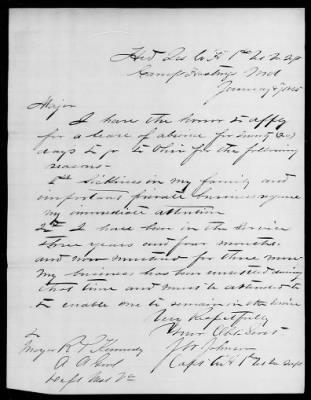 Hd Qrs Co H 1st
Camp Hastings Md
January 1865
Major
I have the honor to apply
for a leave of absence for twenty (20)
days to go to Ohio for the following
reasons.
1st Sickness in my family and
important private business require
my immediate attention
2nd I have been in the service
three years and four months
and now mustered for three more
my business has been unsettled during
that time and must be attended to
to enable me to remain in the service
Very Respectfully
Your Obdt Servt
Johnson
Capt Co H 1st
To
Major R P Kennedy
A A Genl
Dept West Va